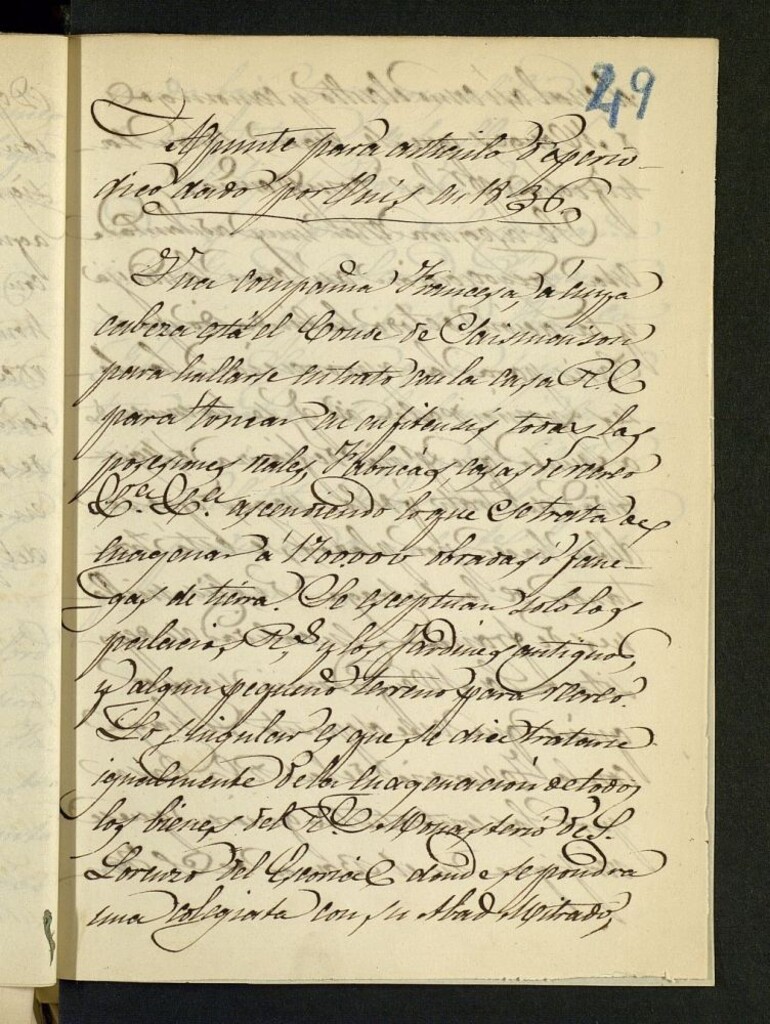 49
Apunte para articulo de perio-
dico dado por Luis en 1836.
Una compañia Francesa, á cuya
cabeza está el Conde de
para hallarse en trato con la casa Rl
para tomar en enfiteusis todas las
posesiones reales, Fabricas, casas de recreo
&ca. &ca. ascendiendo lo que se trata de
enagenar á 1700.000 obradas ó fane-
gas de tierra. Se esceptuan solo los
palacios Rs. y los Jardines antiguos,
y algun pequeño terreno para recreo.
Lo singular es que se dice tratarse
igualmente de la enagenación de todos
los bienes del Rl Monasterio de S.
Lorenzo del Escorial donde se pondra
una colegiata con su Abad Mitrado,